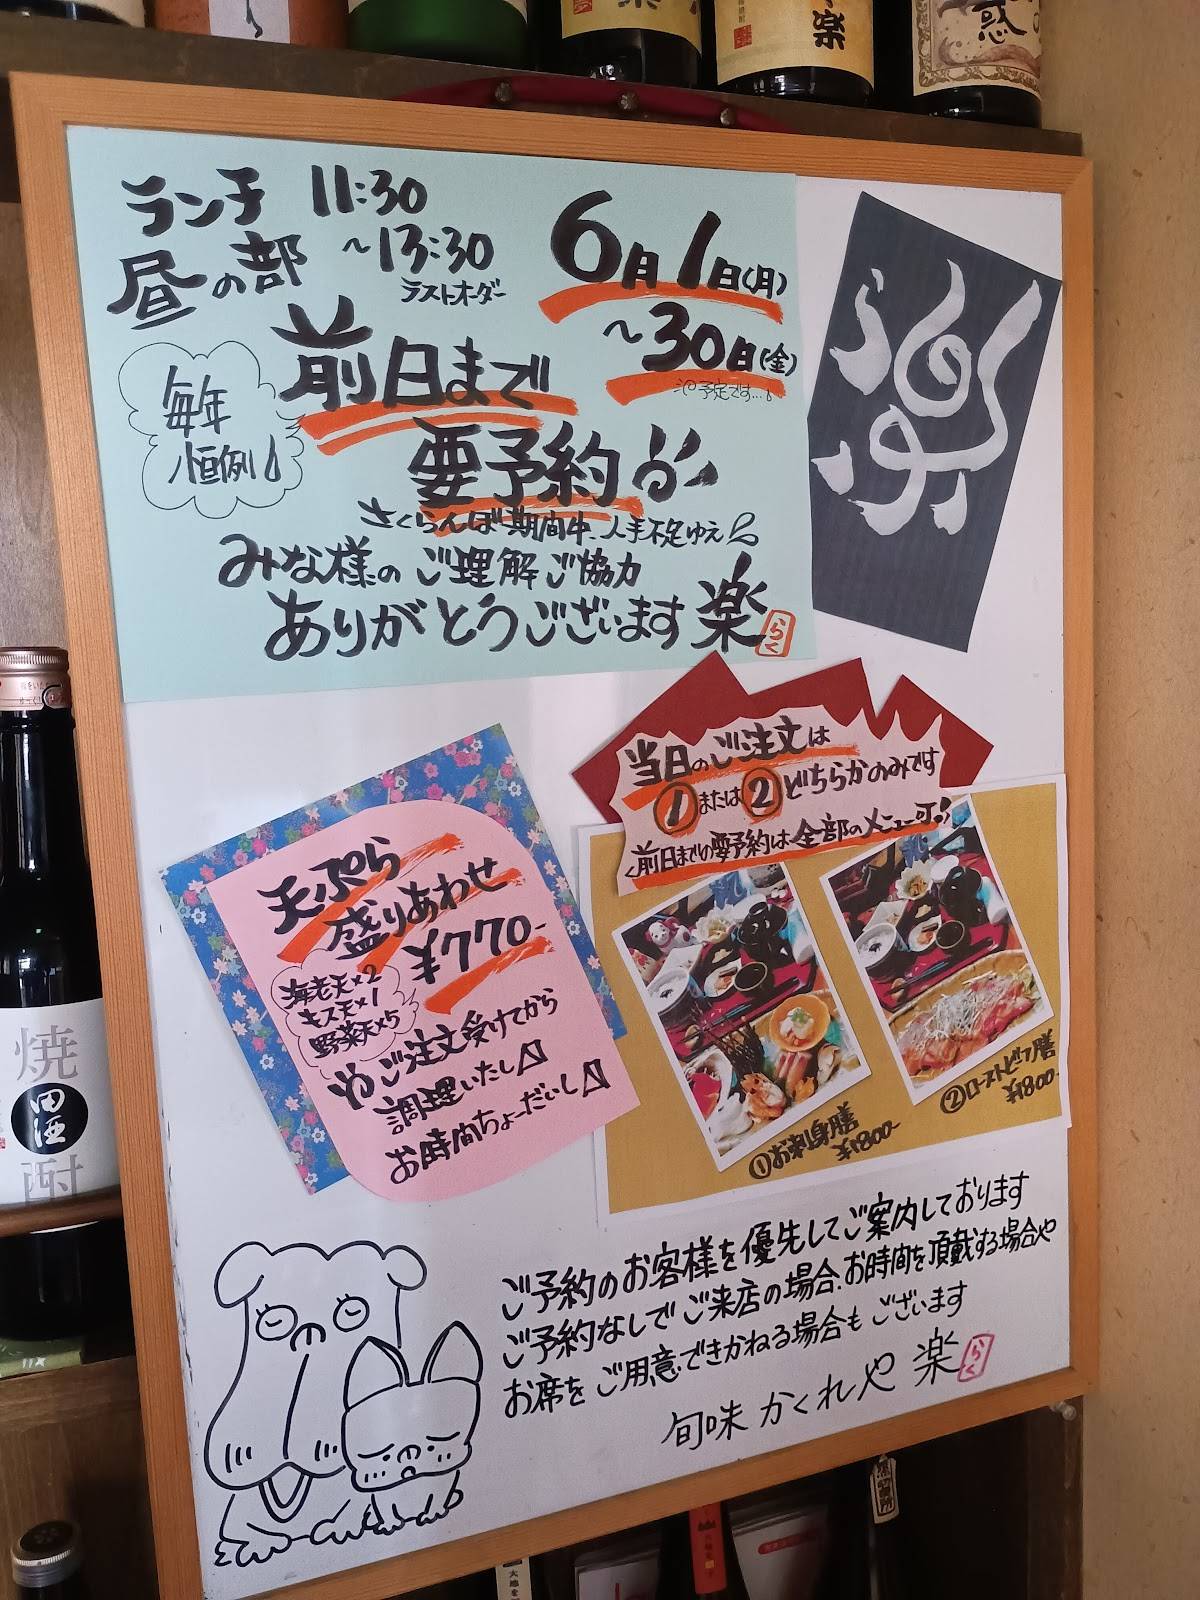 楽
惑
ランチ 11:30
昼の部 ~13:30
ラストオーダー
6月1日(月)
~30日(金)
予定です…
毎年
恒例
前日まで
要予約
さくらんぼ期間中、人手不足ゆえ
みな様の ご理解ご協力
ありがとうございます 楽
らく
当日のご注文は
①または②どちらかのみです
前日までの要予約は全部のメニュー可
天ぷら
盛りあわせ
¥770-
海老天×2
キス天×1
野菜天×5
ご注文受けてから
調理いたし
お時間ちょーだいし
①お刺身膳
¥1800-
②ローストビーフ膳
¥1800-
ご予約のお客様を優先してご案内しております
ご予約なしでご来店の場合、お時間を頂戴する場合や
お席をご用意できかねる場合もございます
旬味 かくれや 楽
らく
焼
田酒
酎